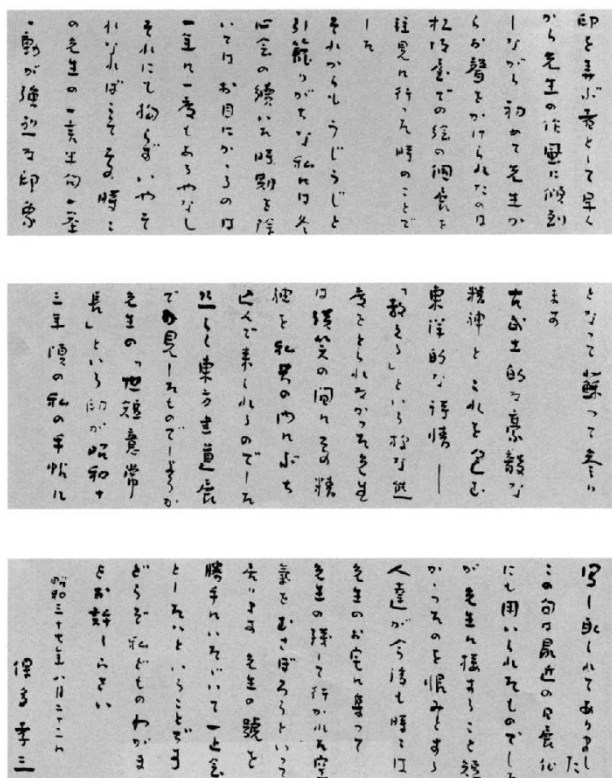 印を学ぶ者として早く
から先生の作風に傾倒
しながら 初めて先生か
らお声をかけられたのは
松坂屋での絵の個展を
拝見に行った時のことで
した
それからもうじうじと
引籠りがちな私には冬
心会の続いた時期を除
いてはお目にかかるのは
一年に一度もあるやなし
それにも拘らずいやそ
れなればこそその時々
の先生の一言半句一挙
一動が強烈な印象
となって蘇って参り
ます
古武士的な豪毅な
精神とこれを包む
東洋的な詩情——
「教える」という様な態
度をとられなかった先生
は談笑の間にその精
神を私共の内にぶち
込んで来られるのでした
恐らく東方書道展
でも見たものでしょうか
先生の「世短意常
長」という印が昭和十
三年頃の私の手帖に
写し取られてありました
この句は最近の日展作
にも用いられたものでした
が 先生に接すること短
かかったのを恨みとする
人達が今後も時には
先生のお宅に集って
先生の残して行かれた空
気をむさぼろうといって
おります 先生の號を
勝手にいただいて一止会
としたいということです
どうぞ私どものわがまま
をお許しください
昭和三十七年八月二十二日
保多孝三